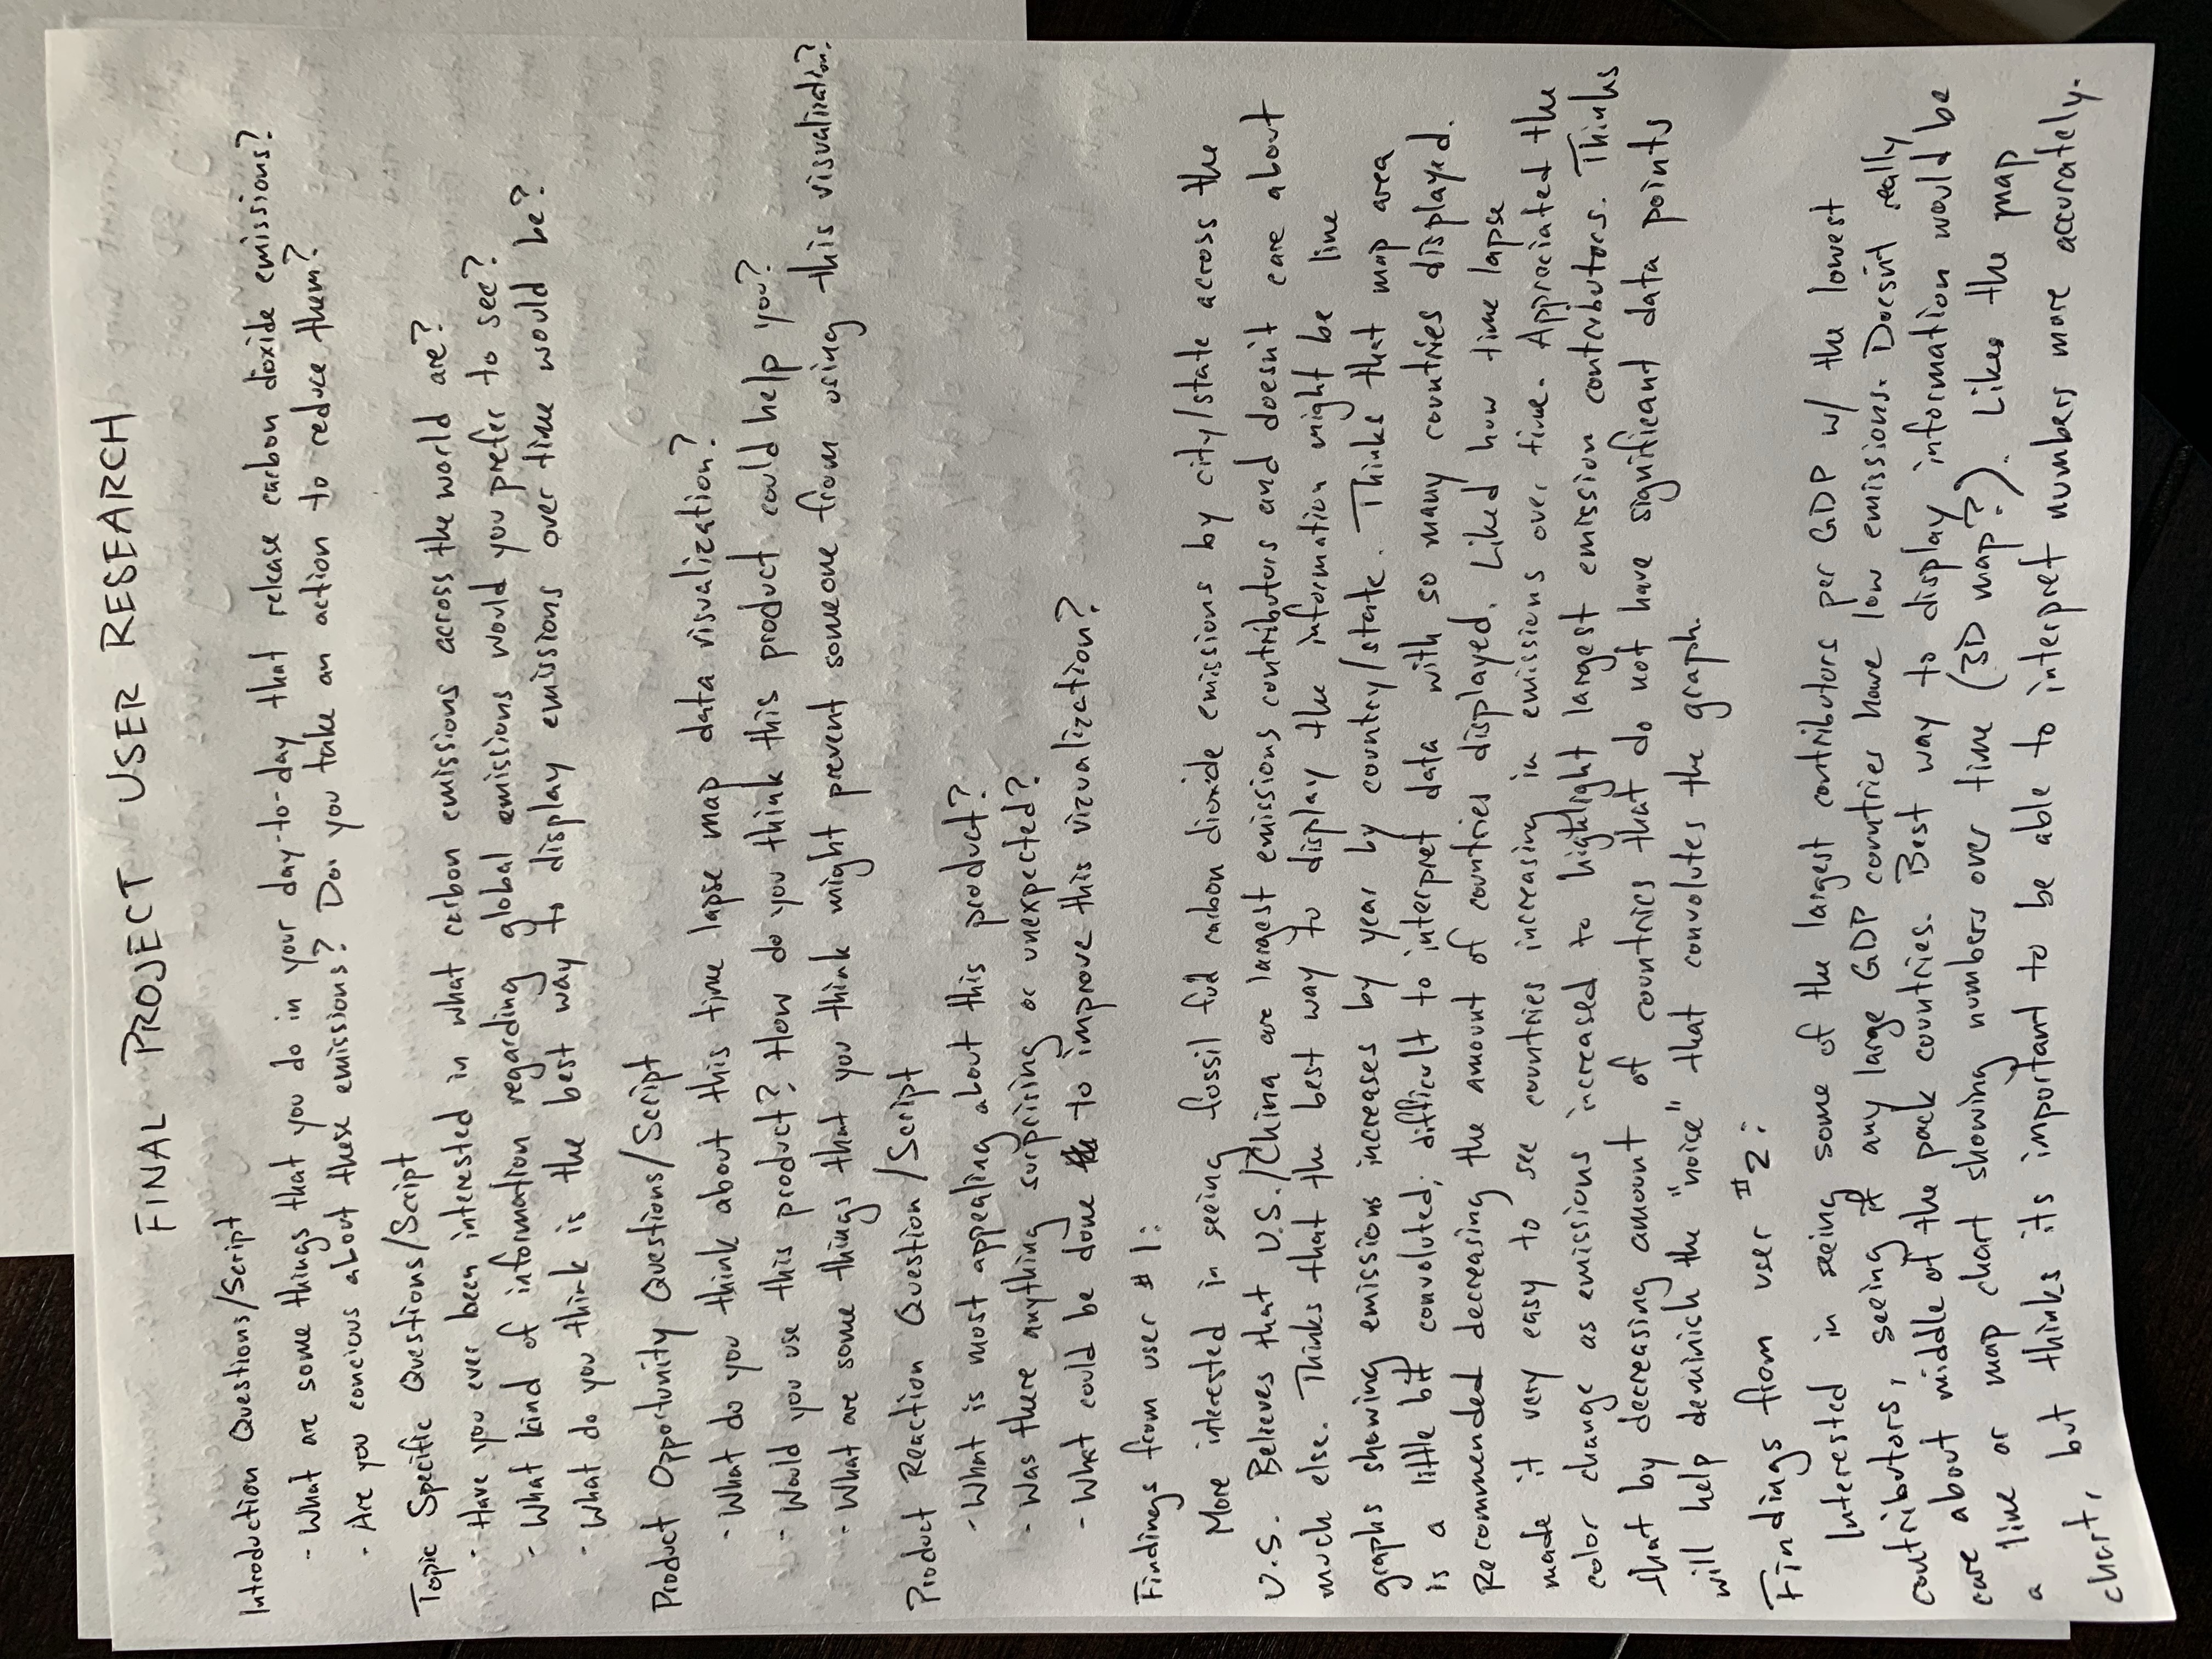 FINAL PROJECT USER RESEARCH
Introduction Questions/Script
- What are some things that you do in your day-to-day that release carbon dioxide emissions?
- Are you concious about these emissions? Do you take an action to reduce them?
Topic Specific Questions/Script
- Have you ever been interested in what carbon emissions across the world are?
- What kind of information regarding global emissions would you prefer to see?
- What do you think is the best way to display emissions over time would be?
Product Opportunity Questions/Script
- What do you think about this time lapse map data visualization?
- Would you use this product? How do you think this product could help you?
- What are some things that you think might prevent someone from using this visualization?
Product Reaction Question/Script
- What is most appealing about this product?
- Was there anything surprising or unexpected?
- What could be done to improve this vizualization?
Findings from user #1:
More interested in seeing fossil fuel carbon dioxide emissions by city/state across the
U.S. Believes that U.S./China are largest emissions contributors and doesn't care about
much else. Thinks that the best way to display the information might be line
graphs showing emissions increases by year by country/state. Thinks that map area
is a little bit convoluted; difficult to interpret data with so many countries displayed.
Recommended decreasing the amount of countries displayed. Liked how time lapse
made it very easy to see countries increasing in emissions over time. Appreciated the
color change as emissions increased to highlight largest emission contributors. Thinks
that by decreasing amount of countries that do not have significant data points
will help deminish the "noise" that convolutes the graph.
Findings from user #2:
Interested in seeing some of the largest contributors per GDP w/ the lowest
contributors, seeing if any large GDP countries have low emissions. Doesn't really
care about middle of the pack countries. Best way to display information would be
a line or map chart showing numbers over time (3D map?). Likes the map
chart, but thinks its important to be able to interpret numbers more accurately.